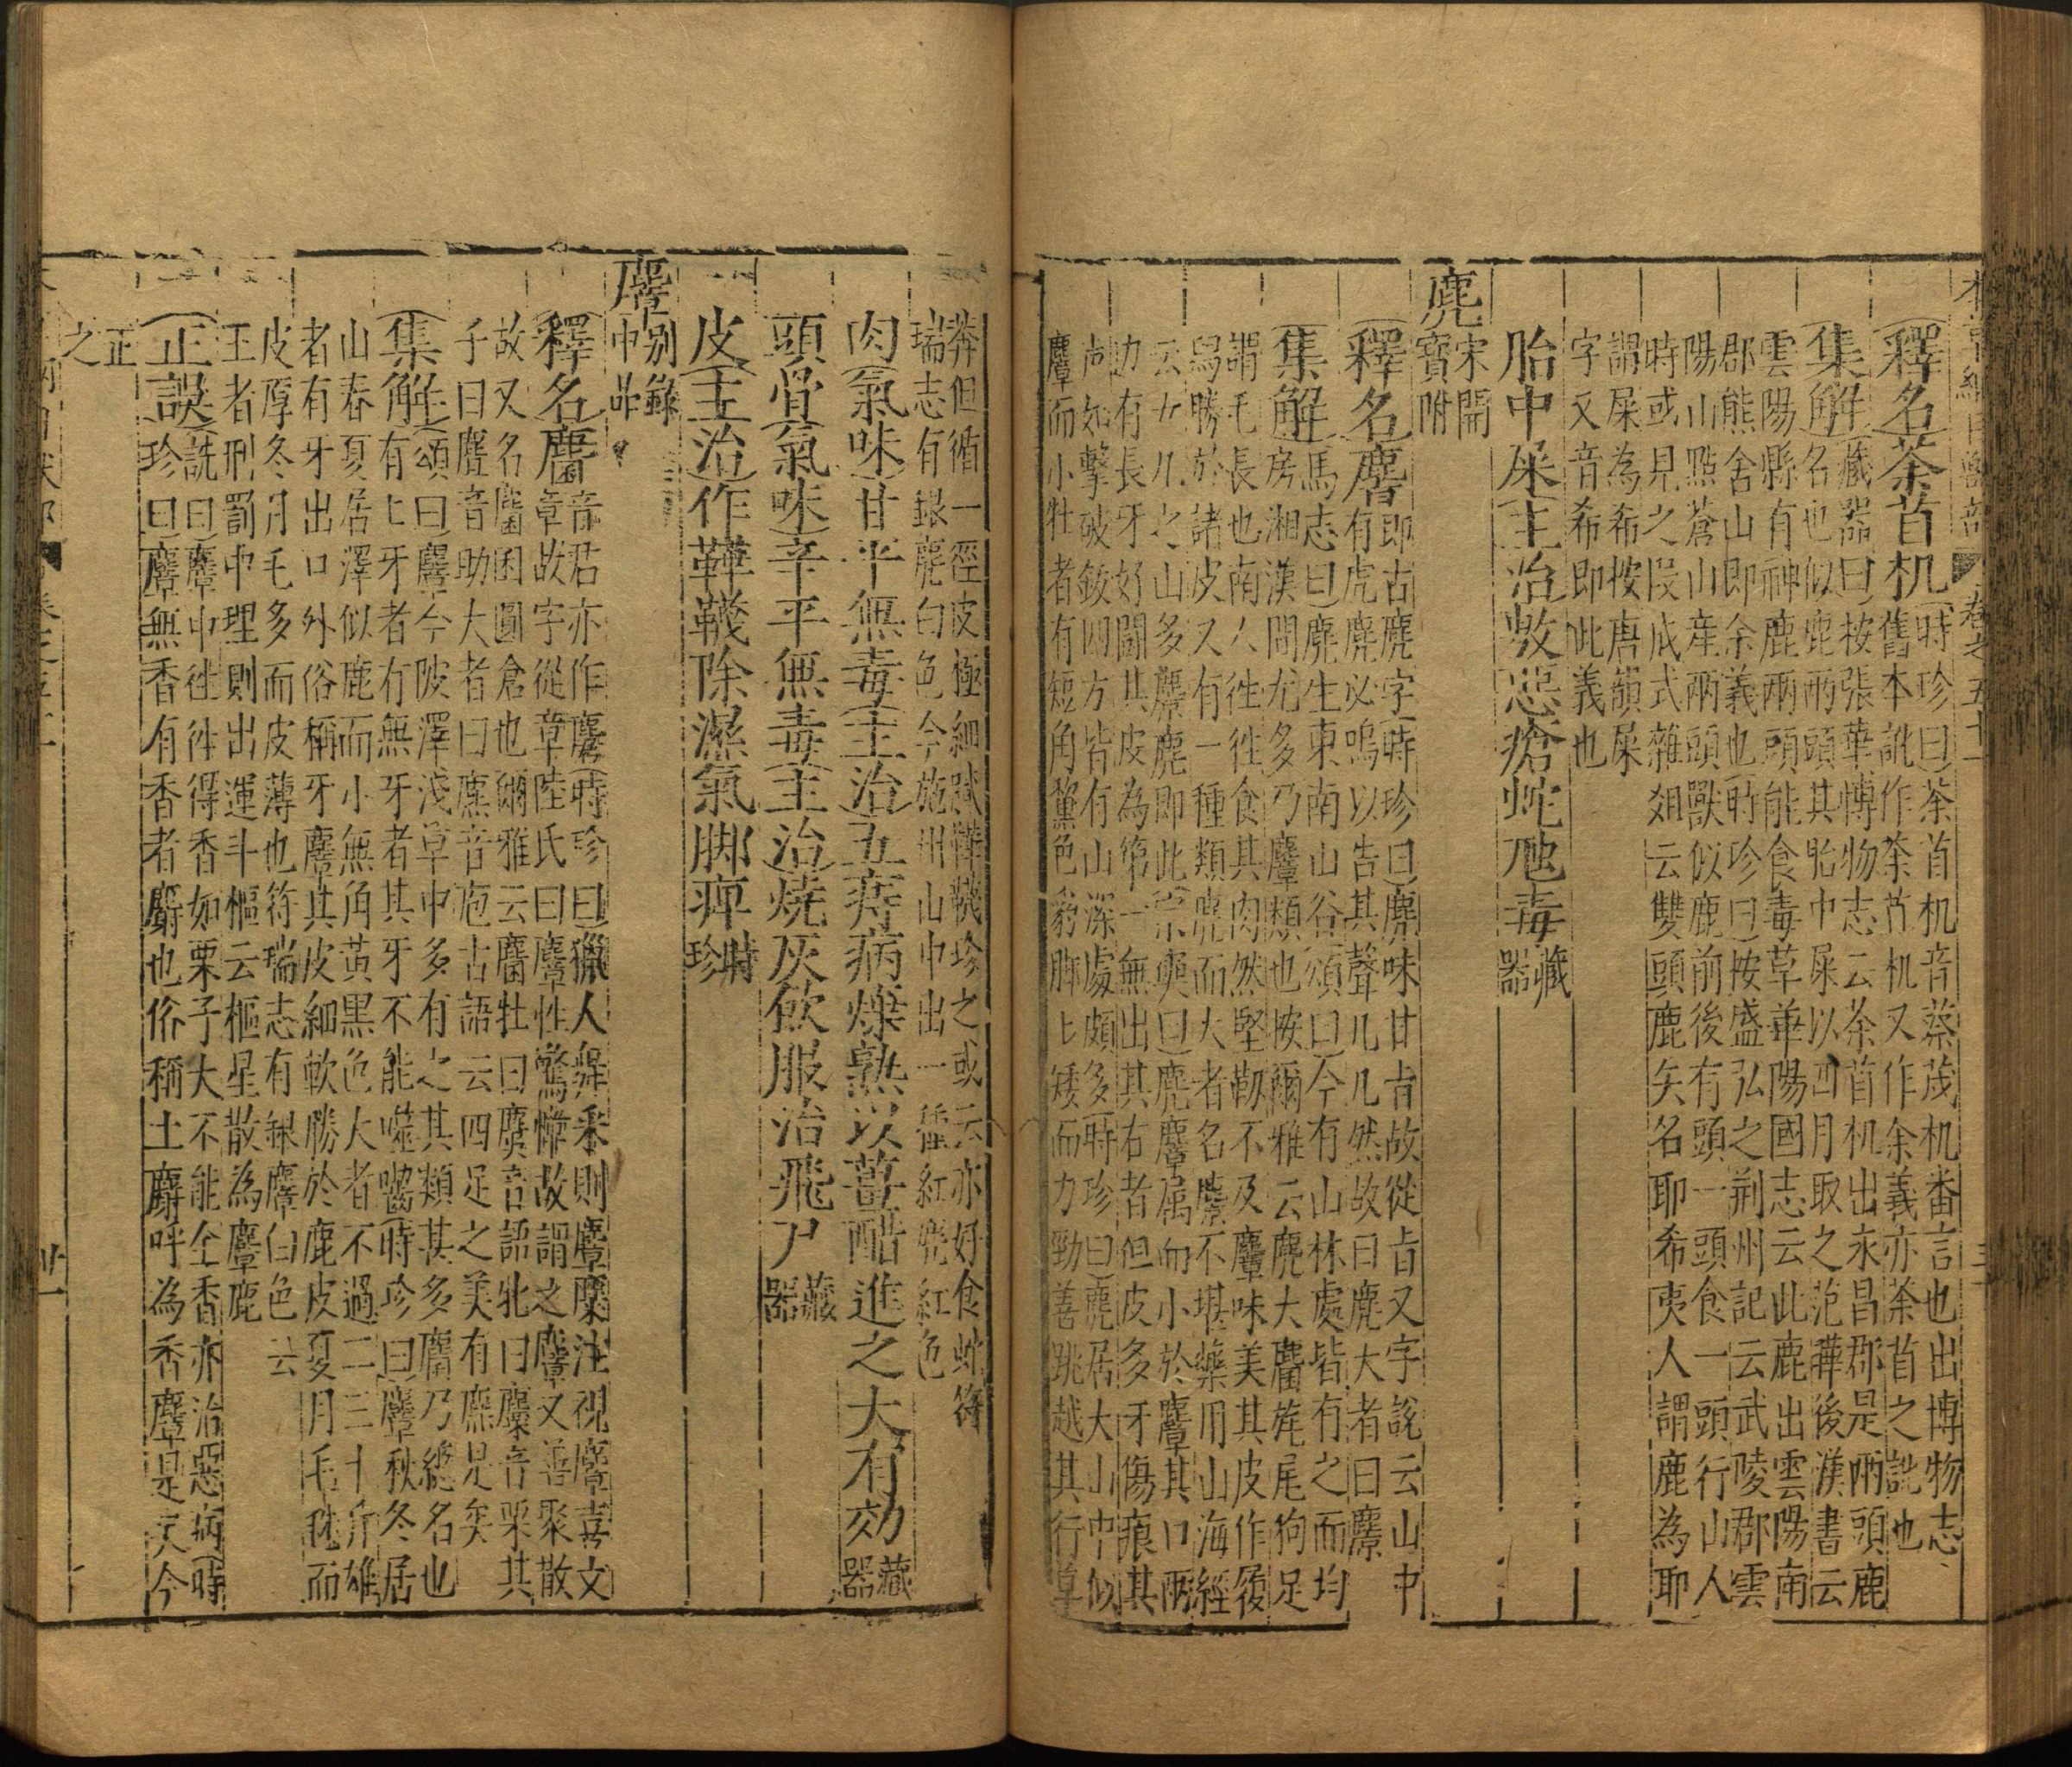 卷之五十一
釋名荼苜机
(時珍曰)荼苜机音蔡茂机番言也出博物志、
舊本訛作荼芇机又作余義亦荼首之訛也
(集解)藏器曰)按張華博物志云荼苜机出永昌郡是兩頭鹿
名也似鹿兩頭其胎中屎以四月取之范曄後漢書云
雲陽縣有神鹿兩頭能食毒草華陽國志云此鹿出雲陽南
郡熊舍山即余義也(時珍曰)按盛弘之荊州記云武陵郡雲
陽山點蒼山産兩頭獸似鹿前後有頭一頭食一頭行山人
時或見之叚成式雜爼云雙頭鹿矢名耶希夷人謂鹿為耶
謂屎為希按唐韻屎
字又音希即此義也
胎中屎(主治)敷惡瘡蛇虺毒藏器
麂宋開寶附
(釋名)麐即古麂字(時珍曰)麂味甘旨故從旨又字説云山中
有虎麂必鳴以告其聲几几然故曰麂大者曰麖
(集解)馬志曰)麂生東南山谷(頌曰)今有山林處皆有之而均
房湘漢間尤多乃麞類也按爾雅云麂大麕旄尾狗足
謂毛長也南人徃徃食其肉然堅靱不及麞味美其皮作履
舄勝於諸皮又有一種類麂而大者名麖不堪藥用山海經
云女几之山多麖麂即此(宗奭曰)麂麞属而小於麞其口兩
力有長牙好鬭其皮為第一無出其右者但皮多牙傷痕其
如擊破鈸四方皆有山深處頗多(時珍曰)麂居大山中似
麞而小牡者有短角黧色豹脚上矮而力勁善跳越其行草
莾但循一徑皮極細膩鞾韈珍之或云亦好食蛇符
瑞志有銀麂白色今施州山中出一種紅麂紅色
肉(氣味)甘平無毒(主治)五痔病煠熟以薑醋進之大有効藏器
頭骨(氣味)辛平無毒(主治)燒灰飲服治飛尸藏器
皮(主治)作鞾韈除濕氣脚痺時珍
麞别錄中品
(釋名)麕音君亦作麇(時珍曰)獵人舞釆則麞麋注視麞喜文
章故字從章陸氏曰麞性驚慞故謂之麞又善聚散
故又名麕囷圓倉也爾雅云麕牡曰麌音語牝曰麜音栗其
子曰麆音助大者曰麃音庖古語云四足之美有麃是矣
(集解)頌曰)麞今陂澤淺草中多有之其類甚多麕乃緫名也
有上牙者有無牙者其牙不能噬齧(時珍曰)麞秋冬居
山春夏居澤似鹿而小無角黄黒色大者不過二三十斤雄
者有牙出口外俗稱牙麞其皮細軟勝於鹿皮夏月毛毨而
皮厚冬月毛多而皮薄也符瑞志有銀麞白色云
王者刑罰中理則出運斗樞云樞星散為麞鹿
(正誤)詵曰)麞中徃徃得香如栗子大不能全香亦治惡病(時
珍曰)麞無香有香者麝也俗稱土麝呼為香麞是矣今
正之
廿一